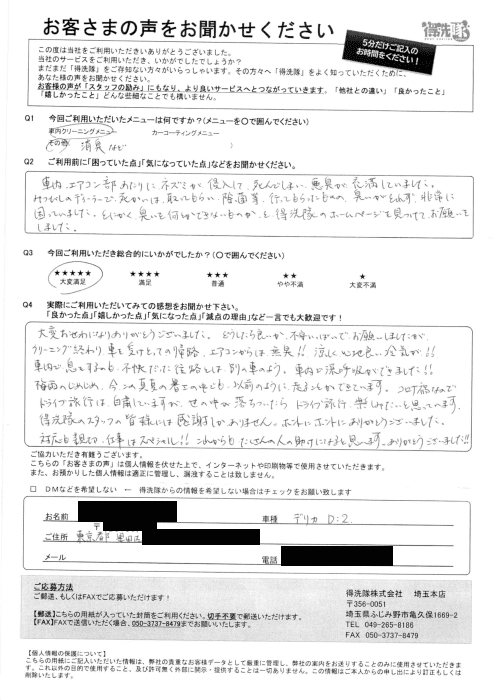 お客さまの声をお聞かせください
得洗隊
5分だけご記入の
お時間をください!
この度は当社をご利用いただきありがとうございました。
当社のサービスをご利用いただき、いかがでしたでしょうか?
まだまだ「得洗隊」をご存知ない方々がいらっしゃいます。その方々へ「得洗隊」をよく知っていただくために、
あなた様の声をお聞かせください。
お客様の声が「スタッフの励み」にもなり、より良いサービスへとつながっていきます。「他社との違い」「良かったこと」
「嬉しかったこと」どんな些細なことでも構いません。
Q1 今回ご利用いただいたメニューは何ですか?(メニューを○で囲んでください)
車内クリーニングメニュー カーコーティングメニュー
その他( 消臭など )
Q2 ご利用前に「困っていた点」「気になっていた点」などをお聞かせください。
車内、エアコン部あたりにネズミが侵入して、死んでしまい、悪臭が充満していました。
ディーラーで、死がいは、取ってもらい、除菌等、行ってもらったものの、臭いがとれず、非常に
困っていました。とにかく、臭いを何とかできないものか、と、得洗隊のホームページを見つけて、お願いを
しました。
Q3 今回ご利用いただき総合的にいかがでしたか?(○で囲んでください)
★★★★★ ★★★★ ★★★ ★★ ★
大変満足 満足 普通 やや不満 大変不満
Q4 実際にご利用いただいてみての感想をお聞かせ下さい。
「良かった点」「嬉しかった点」「気になった点」「減点の理由」など一言でも大歓迎です!
大変お世話になりありがとうございました。どうしたら良いか、不安いっぱいで、お願いしましたが、
クリーニング終わり、車を受けとっての帰路、エアコンからは、無臭!!涼しく心地良い冷気が!!
車内で息をするのも不快だった往路とは、別の車のよう。車内で深呼吸ができました!!
梅雨のじめじめ、今この真夏の暑さの中でも、以前のように、走ることができています。コロナ禍なので
ドライブ旅行は、自粛していますが、世の中が落ちついたら、ドライブ旅行、楽しみたいと思っています。
得洗隊のスタッフの皆様には感謝しかありません。ホントにホントにありがとうございました。
対応も親切、仕事はスペシャル!!これからもたくさんの人の助けになると思います。ありがとうございました!!
ご協力いただき有難うございます。
こちらの「お客さまの声」は個人情報を伏せた上で、インターネットや印刷物等で使用させていただきます。
また、お預かりした個人情報は適正に管理し、漏洩することは致しません。
□ DMなどを希望しない ← 得洗隊からの情報を希望しない場合はチェックをお願い致します
お名前 車種 デリカ D:2
〒
ご住所 東京都
メール 電話
ご応募方法
ご郵送、もしくはFAXでご応募いただけます!
【郵送】こちらの用紙が入っていた封筒をご利用ください。切手不要で郵送いただけます。
【FAX】FAXで送信いただく場合、050-3737-8479までお願いいたします。
得洗隊株式会社 埼玉本店
〒356-0051
埼玉県ふじみ野市亀久保1669-2
TEL 049-265-8186
FAX 050-3737-8479
【個人情報の保護について】
こちらの用紙にご記入いただいた情報は、弊社の貴重なお客様データとして厳重に管理し、弊社の案内をお送りすることのみに使用させていただきま
す。これ以外の目的で使用すること、及び許可無く外部に開示・提供することは一切ありません。この情報はご本人からの申し出により訂正もしくは
削除いたします。